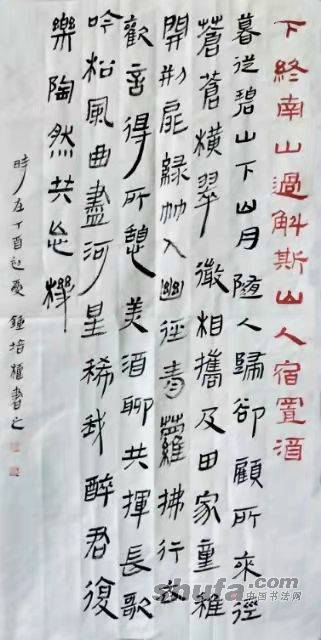 下終南山過斛斯山人宿置酒
暮從碧山下山月隨人歸卻顧所來徑
蒼蒼橫翠微相攜及田家童稚
開荊扉綠竹入幽徑青蘿拂行衣
歡言得所憩美酒聊共揮長歌
吟松風曲盡河星稀我醉君復
樂陶然共忘機
時在丁酉夏鍾培書之
shufa.com
中国书法网